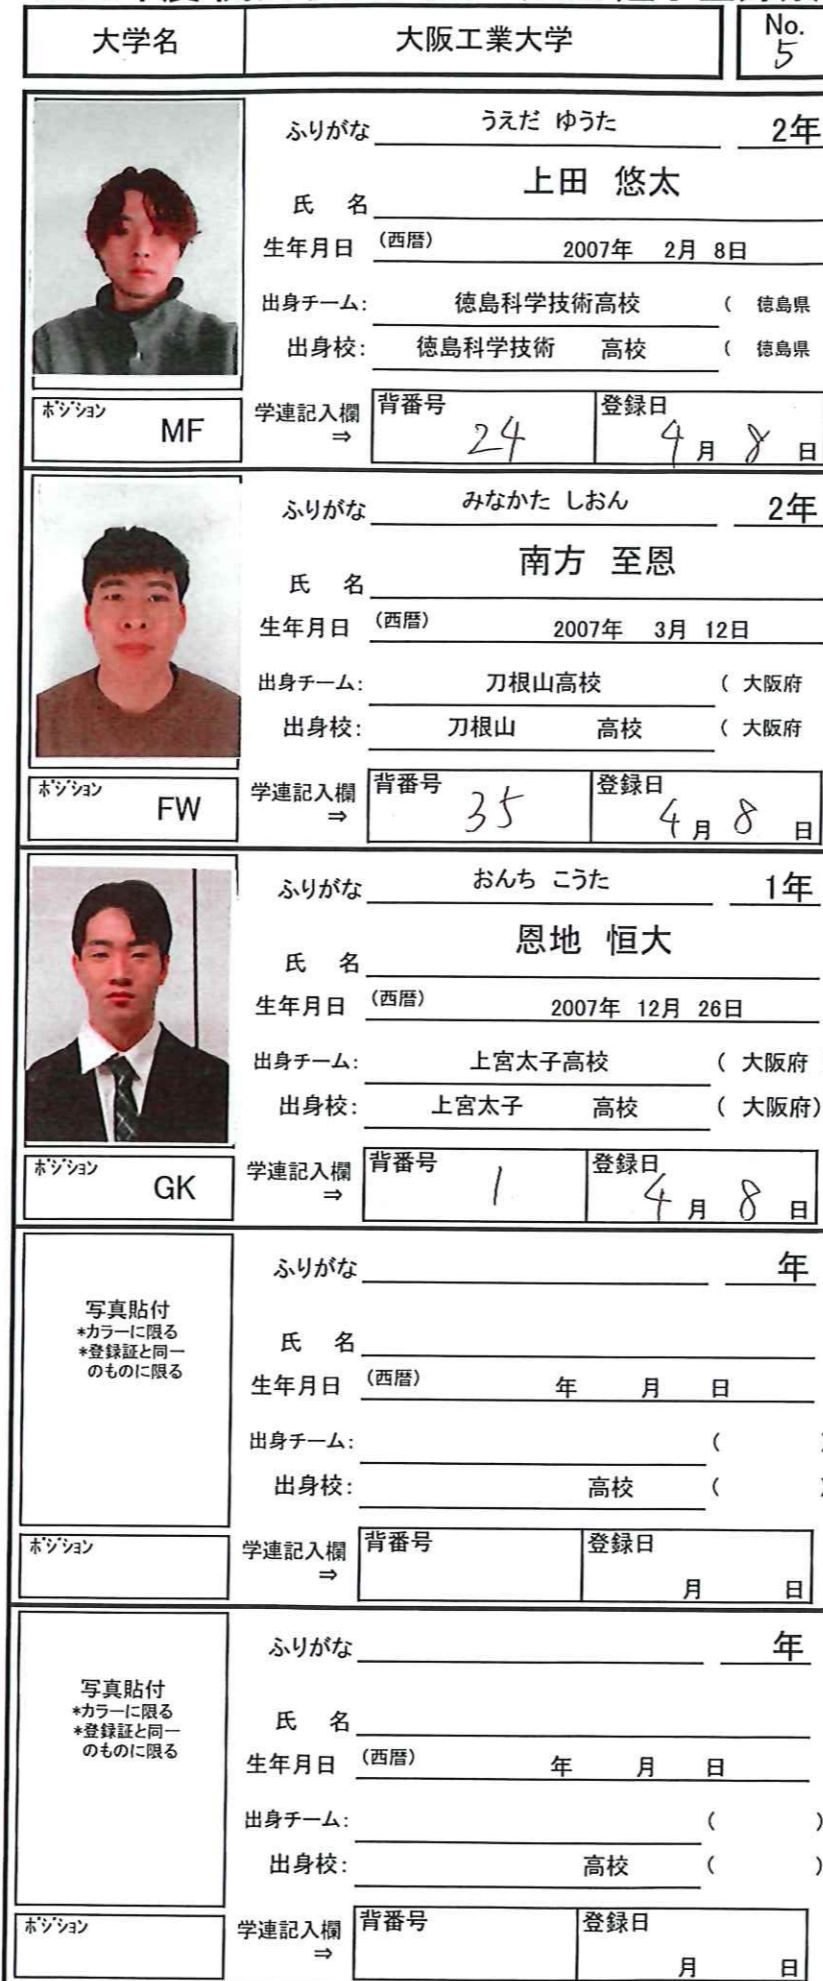 大学名 大阪工業大学 No. 5
ふりがな うえだ ゆうた 2年
氏 名 上田 悠太
生年月日 (西暦) 2007年 2月 8日
出身チーム: 徳島科学技術高校 ( 徳島県
出身校: 徳島科学技術 高校 ( 徳島県
ポジション MF 学連記入欄 ⇒ 背番号 24 登録日 4月 8日
ふりがな みなかた しおん 2年
氏 名 南方 至恩
生年月日 (西暦) 2007年 3月 12日
出身チーム: 刀根山高校 ( 大阪府
出身校: 刀根山 高校 ( 大阪府
ポジション FW 学連記入欄 ⇒ 背番号 35 登録日 4月 8日
ふりがな おんち こうた 1年
氏 名 恩地 恒大
生年月日 (西暦) 2007年 12月 26日
出身チーム: 上宮太子高校 ( 大阪府
出身校: 上宮太子 高校 ( 大阪府)
ポジション GK 学連記入欄 ⇒ 背番号 1 登録日 4月 8日
写真貼付
*カラーに限る
*登録証と同一
のものに限る
ふりがな 年
氏 名
生年月日 (西暦) 年 月 日
出身チーム: ( )
出身校: 高校 ( )
ポジション 学連記入欄 ⇒ 背番号 登録日 月 日
写真貼付
*カラーに限る
*登録証と同一
のものに限る
ふりがな 年
氏 名
生年月日 (西暦) 年 月 日
出身チーム: ( )
出身校: 高校 ( )
ポジション 学連記入欄 ⇒ 背番号 登録日 月 日